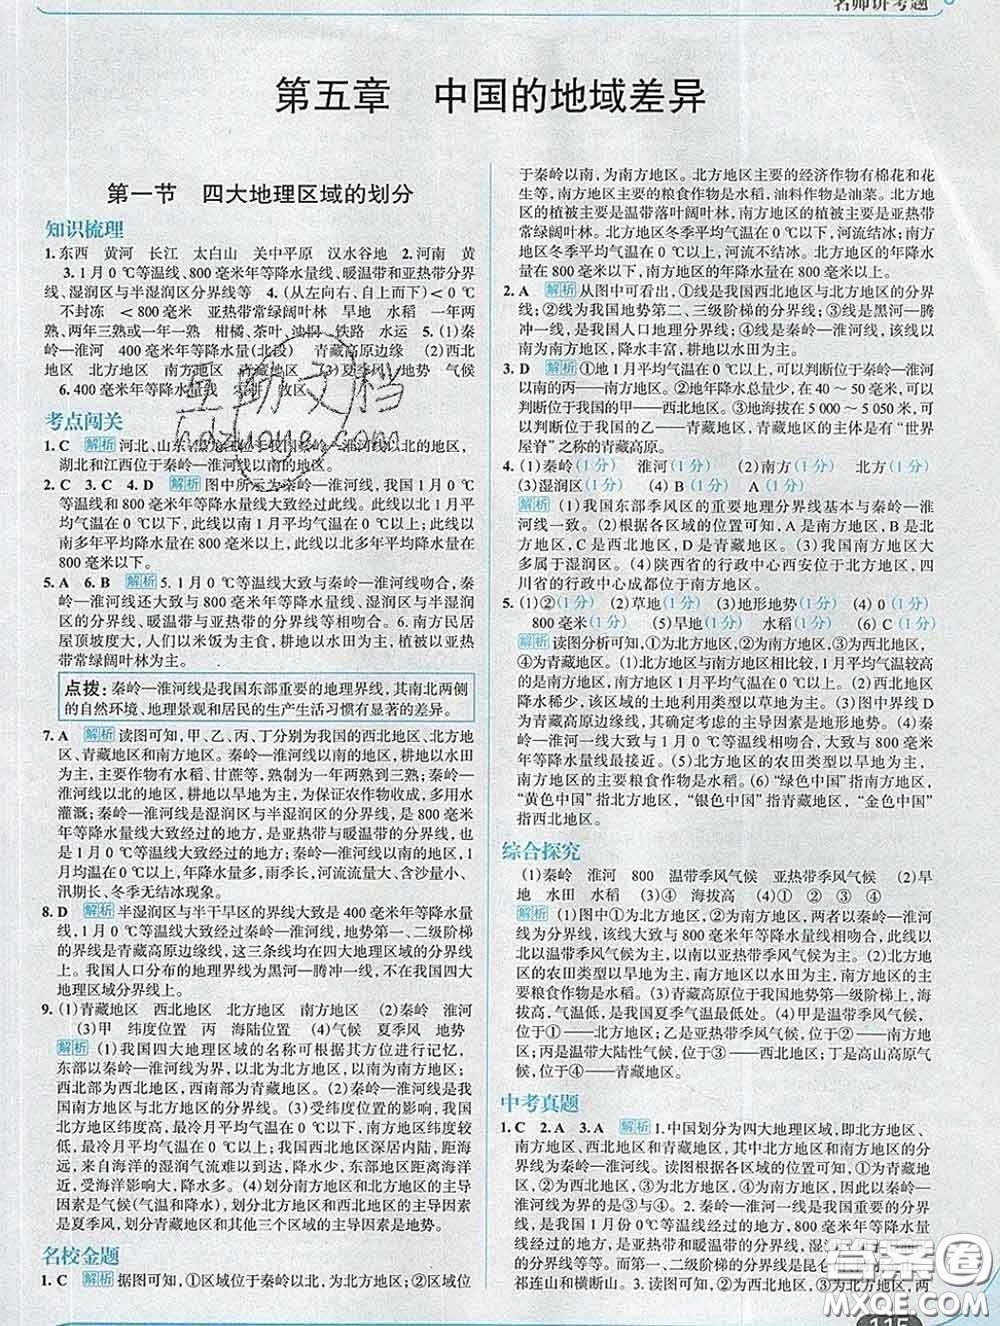 名师讲考题
第五章 中国的地域差异
第一节 四大地理区域的划分
知识梳理
1.东西 黄河 长江 太白山 关中平原 汉水谷地 2.河南 黄
3.1月0℃等温线、800毫米年等降水量线、暖温带和亚热带分界
线、湿润区与半湿润区分界线等 4.(从左向右、自上而下)<0℃
不封冻 <800毫米 亚热带常绿阔叶林 旱地 水田 一年
两熟、两年三熟或一年一熟 柑橘、茶叶、油桐 铁路 水运 5.(1)秦
岭—淮河 400毫米年等降水量(北段) 青藏高原边缘 (2)西北
地区 北方地区 南方地区 青藏地区 (3)夏季风 地势 气候
6.400毫米年等降水量线 农耕 牧区
考点闯关
1.C 解析 河北、山东、黑龙江是秦岭—淮河线以北的地区,
湖北和江西位于秦岭—淮河线以南的地区。
2.C 3.C 4.D 解析 图中所示为秦岭—淮河线,我国1月0℃等
温线和800毫米年等降水量线大致经过此线。此线以北1月平
均气温在0℃以下,此线以南1月平均气温在0℃以上;此线以
南多年平均年降水量在800毫米以上,此线以北多年平均年降水
量在800毫米以下。
5.A 6.B 解析 5.1月0℃等温线大致与秦岭—淮河线吻合,秦岭—
淮河线还大致与800毫米年等降水量线、湿润区与半湿润区
的分界线、暖温带与亚热带的分界线等相吻合。6.南方民居
屋顶坡度大,人们以米饭为主食,耕地以水田为主,植被以亚热
带常绿阔叶林为主。
点拨:秦岭—淮河线是我国东部重要的地理界线,其南北两侧
的自然环境、地理景观和居民的生产生活习惯有显著的差异。
7.A 解析 读图可知,甲、乙、丙、丁分别为我国的西北地区、北方地
区、青藏地区和南方地区。秦岭—淮河线以南的地区,耕地以水田
为主,主要作物有水稻、甘蔗等,熟制为一年两熟到三熟;秦岭—
淮河线以北的地区,耕地以旱地为主,为保证农作物收成,多用水
灌溉;秦岭—淮河线是湿润区与半湿润区的分界线,是800毫米
年等降水量线大致经过的地方,是亚热带与暖温带的分界线,是1
月0℃等温线大致经过的地方;秦岭—淮河线以南的河流,1月
平均气温在0℃以上,年降水量大,雨季长,河流流量大、含沙量小、
汛期长、冬季无结冰现象。
8.D 解析 半湿润区与半干旱区的界线大致是400毫米年等降水
量线,我国南北方地区的界线大致是秦岭—淮河线,地势第一、二级
阶梯的界线是青藏高原边缘线,这三条线均在四大地理区域的分界线
上。我国人口分布的地理界线为黑河—腾冲一线,不在我国四大
地理区域分界线上。
9.(1)青藏地区 西北地区 北方地区 南方地区 (2)秦岭 淮河
(3)甲 纬度位置 丙 海陆位置 (4)气候 夏季风 地势
解析 (1)我国四大地理区域的名称可根据其方位进行记忆,
以南为南方地区,秦岭—淮河线以北为北方地区,
西北部为西北地区,西南部为青藏地区。(2)秦岭—淮河线是我
国南方地区与北方地区的分界线。(3)受纬度位置的影响,我国
北方地区冬季最冷月平均气温在0℃以下,南方地区冬季最
冷月平均气温在0℃以上。我国西北地区深居内陆,距海远,
来自海洋的湿润气流难以到达,东部地区距离海洋近,
受海洋影响大,降水多。(4)划分四大地理区域的主导
因素是气候(气温和降水),划分北方地区和南方地区的主导因
素是气候,划分北方地区和西北地区的主导因素
是夏季风,划分青藏地区和其他三个区域的主导因素是地势。
名校金题
1.C 解析 据图可知,①区域位于秦岭以北,为北方地区;②区域位
于秦岭以南,为南方地区。北方地区主要的经济作物有棉花和花
生等,南方地区主要的粮食作物是水稻,油料作物是油菜。北方地
区的植被主要是温带落叶阔叶林,南方地区的植被主要是亚热带
常绿阔叶林。北方地区冬季平均气温在0℃以下,河流结冰;南方
地区冬季平均气温在0℃以上,河流不结冰。北方地区的年降水
量在800毫米以下,南方地区的年降水量在800毫米以上。
2.A 解析 从图中可看出,①线是我国西北地区与北方地区的分界
线;②线为我国地势第二、三级阶梯的分界线;③线是黑河—腾
冲一线,是我国人口地理分界线;④线是秦岭—淮河线,此线以
南,降水丰富,耕地以水田为主。
3.D 解析 ①地1月平均气温在0℃以上,可以判断位于秦岭—淮河
以南的丙——南方地区。②地年降水总量少,在40~50毫米,可
以判断位于我国的甲——西北地区。③地海拔在5 000~5 050米,可以
判断位于我国的乙——青藏地区,青藏地区的主体是有“世界
屋脊”之称的青藏高原。
4.(1)秦岭(1分) 淮河(1分) (2)南方(1分) 北方(1分)
(3)湿润区(1分) (4)B(1分) A(1分)
解析 (1)我国东部季风区的重要地理分界线基本与秦岭—淮
河线一致。(2)根据各区域的位置可知,A是南方地区,B是北
方地区,C是西北地区,D是青藏地区。(3)我国南方地区大
多属于湿润区。(4)陕西省的行政中心西安位于北方地区,四
川省的行政中心成都位于南方地区。
5.(1)②(1分) (2)草地(1分) (3)地形地势(1分) (4)0(1分)
800毫米(1分) (5)旱地(1分) 水稻(1分) (6)C(1分)
解析 读图分析可知,①为北方地区,②为南方地区,③为西北地区,
④为青藏地区。(1)北方地区与南方地区相比较,1月平均气温较高
的是南方地区,1月平均气温在0℃以上。(2)西北地区
降水稀少,该区域的土地利用类型以草地为主。(3)图中界线D
为青藏高原边缘线,其确定考虑的主导因素是地形地势。(4)秦
岭—淮河一线大致与我国1月0℃等温线相吻合,大致与800毫米年
等降水量线最接近。(5)北方地区的农田类型以旱地为主,
南方地区的主要粮食作物是水稻。(6)“绿色中国”指南方地区,
“黄色中国”指北方地区,“银色中国”指青藏地区,“金色中国”
指西北地区。
综合探究
(1)秦岭 淮河 800 温带季风气候 亚热带季风气候 (2)旱
地 水田 水稻 (3)④ 海拔高 (4)② ④
解析 (1)图中①为北方地区,②为南方地区,两者以秦岭—淮河
线为分界线,该线大致与800毫米年等降水量线吻合,此线以
北为温带季风气候,此线以南为亚热带季风气候。(2)北方地
区的农田类型以旱地为主,南方地区的农田类型以水田为主,南
方地区的主要粮食作物是水稻。(3)青藏高原位于我国地势第一级阶梯上,海
拔高,气温低,是我国夏季气温最低处。(4)甲是温带季风气候,
位于①——北方地区;乙是亚热带季风气候,位于②——南方地
区;丙是温带大陆性气候,位于③——西北地区;丁是高山高原气
候,位于④——青藏地区。
中考真题
1.C 2.A 3.A 解析 1.中国划分为四大地理区域,即北方地区、
南方地区、西北地区和青藏地区,其中南方地区和北方地区的分
界线是秦岭—淮河线。读图根据各区域的位置可知,图中表示秦岭—
淮河线的是③与④。2.秦岭—淮河线是
我国1月份0℃等温线、800毫米年等降水量线、
湿润区与半湿润区的分界线、亚热带与暖温带的分界线
等。而第一、二级阶梯的分界线是昆仑山—
祁连山和横断山。3.读图可知,①为北方地区,②为南方地区,③为西北地区,两
答案圈
MXQE.COM
115